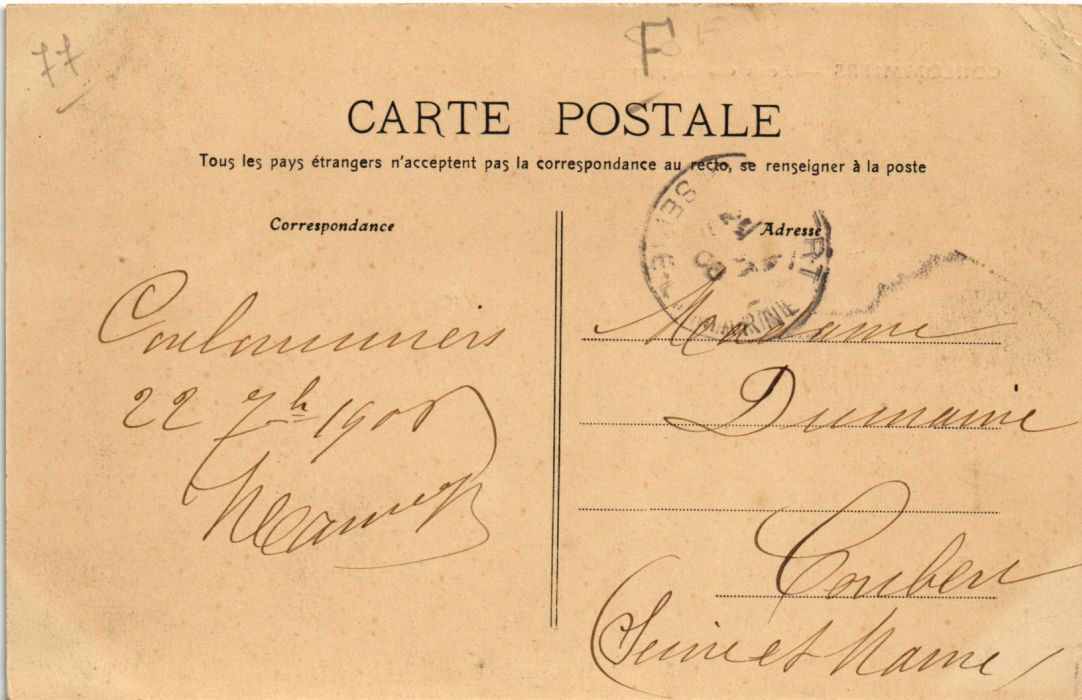 77
F
CARTE POSTALE
Tous les pays étrangers n'acceptent pas la correspondance au recto, se renseigner à la poste
Correspondance
Adresse
Coulommiers
22 7b 1908
Madame
Dumaine
Coubert
(Seine et Marne)
SEINE